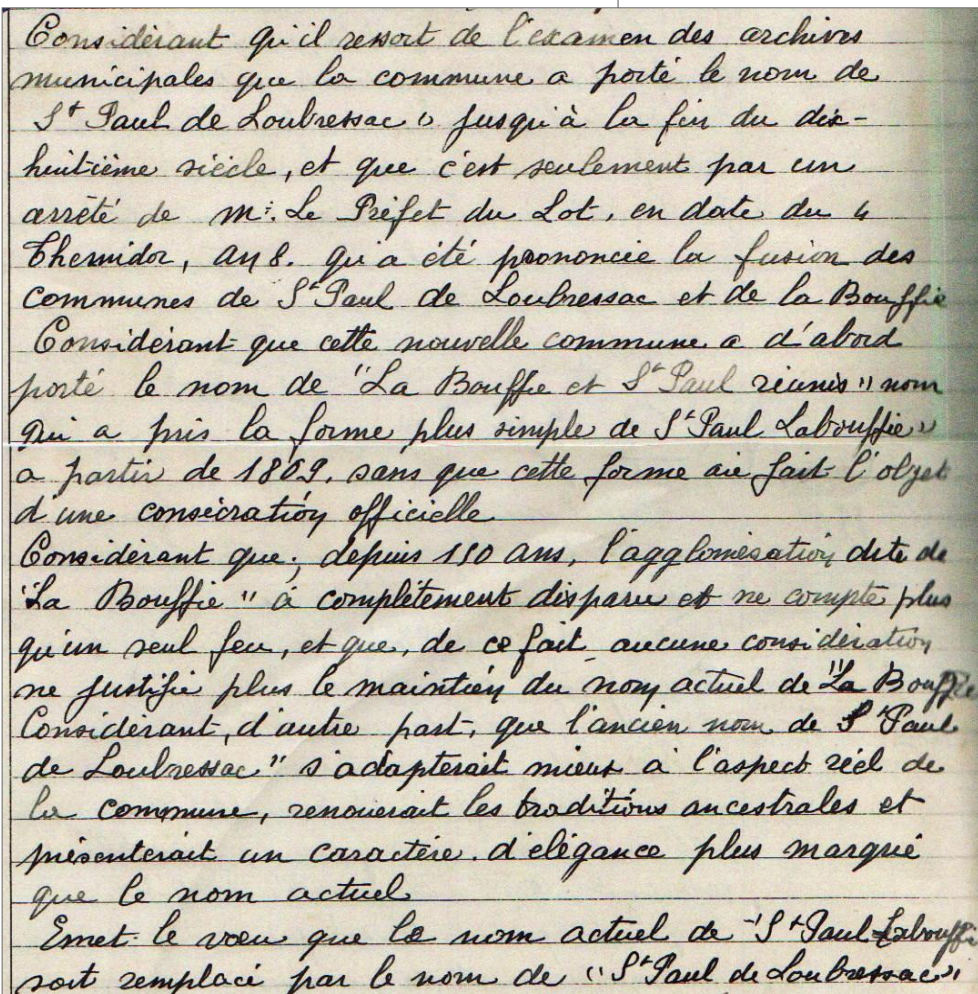 Considérant qu'il ressort de l'examen des archives
municipales que la commune a porté le nom de
St Paul de Loubressac » jusqu'à la fin du dix-
huitième siècle, et que c'est seulement par un
arrêté de M. Le Préfet du Lot, en date du 4
Thermidor, an 8. qu'a été prononcée la fusion des
communes de St Paul de Loubressac et de la Bouffie
Considérant que cette nouvelle commune a d'abord
porté le nom de "La Bouffie et St Paul réunis" nom
qui a pris la forme plus simple de St Paul Labouffie »
a partir de 1809. sans que cette forme aie fait l'objet
d'une consécration officielle
Considérant que, depuis 150 ans, l'agglomération dite de
"La Bouffie" à complètement disparu et ne compte plus
qu'un seul feu, et que, de ce fait aucune considération
ne justifie plus le maintien du nom actuel de "La Bouffie
Considérant, d'autre part, que l'ancien nom de St Paul
de Loubressac" s'adapterait mieux à l'aspect réel de
la commune, renouerait les traditions ancestrales et
présenterait un caractère d'élégance plus marqué
que le nom actuel
Emet le vœu que le nom actuel de "St Paul Labouffie
soit remplacé par le nom de "St Paul de Loubressac"